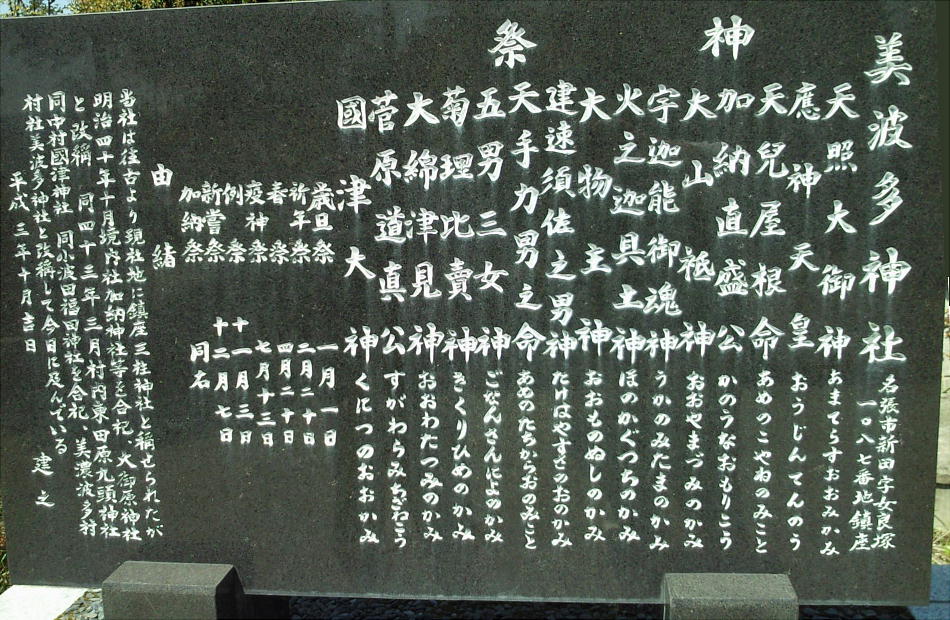 美波多神社
名張市新田字女良塚
一〇八七番地鎮座
祭神
天照大御神 あまてらすおおみかみ
應神天皇 おうじんてんのう
天兒屋根命 あめのこやねのみこと
加納直盛公 かのうなおもりこう
大山祗神 おおやまづみのかみ
宇迦能御魂神 うかのみたまのかみ
火之迦具土神 ほのかぐつちのかみ
大物主神 おおものぬしのかみ
建速須佐之男神 たけはやすさのおのかみ
天手力男之命 あめのたちからおのみこと
五男三女神 ごなんさんによのかみ
菊理比賣神 きくりひめのかみ
大綿津見神 おおわたつみのかみ
菅原道真公 すがわらみちざねこう
國津大神 くにつのおおかみ
歳旦祭 一月一日
祈年祭 二月二十日
春祭 四月二十日
疫神祭 七月十三日
例祭 十一月三日
新嘗祭 十二月七日
加納祭 同右
由緒
当社は往古より現社地に鎮座三社神社と称せられたが
明治四十年十月境内社加納神社等を合祀、大御原神社
と改稱 同四十三年三月村内東田原九頭神社
同中村國津神社 同小波田福田神社を合祀 美濃波多村
村社美波多神社と改稱して今日に及んでいる
平成三年十月吉日 建之